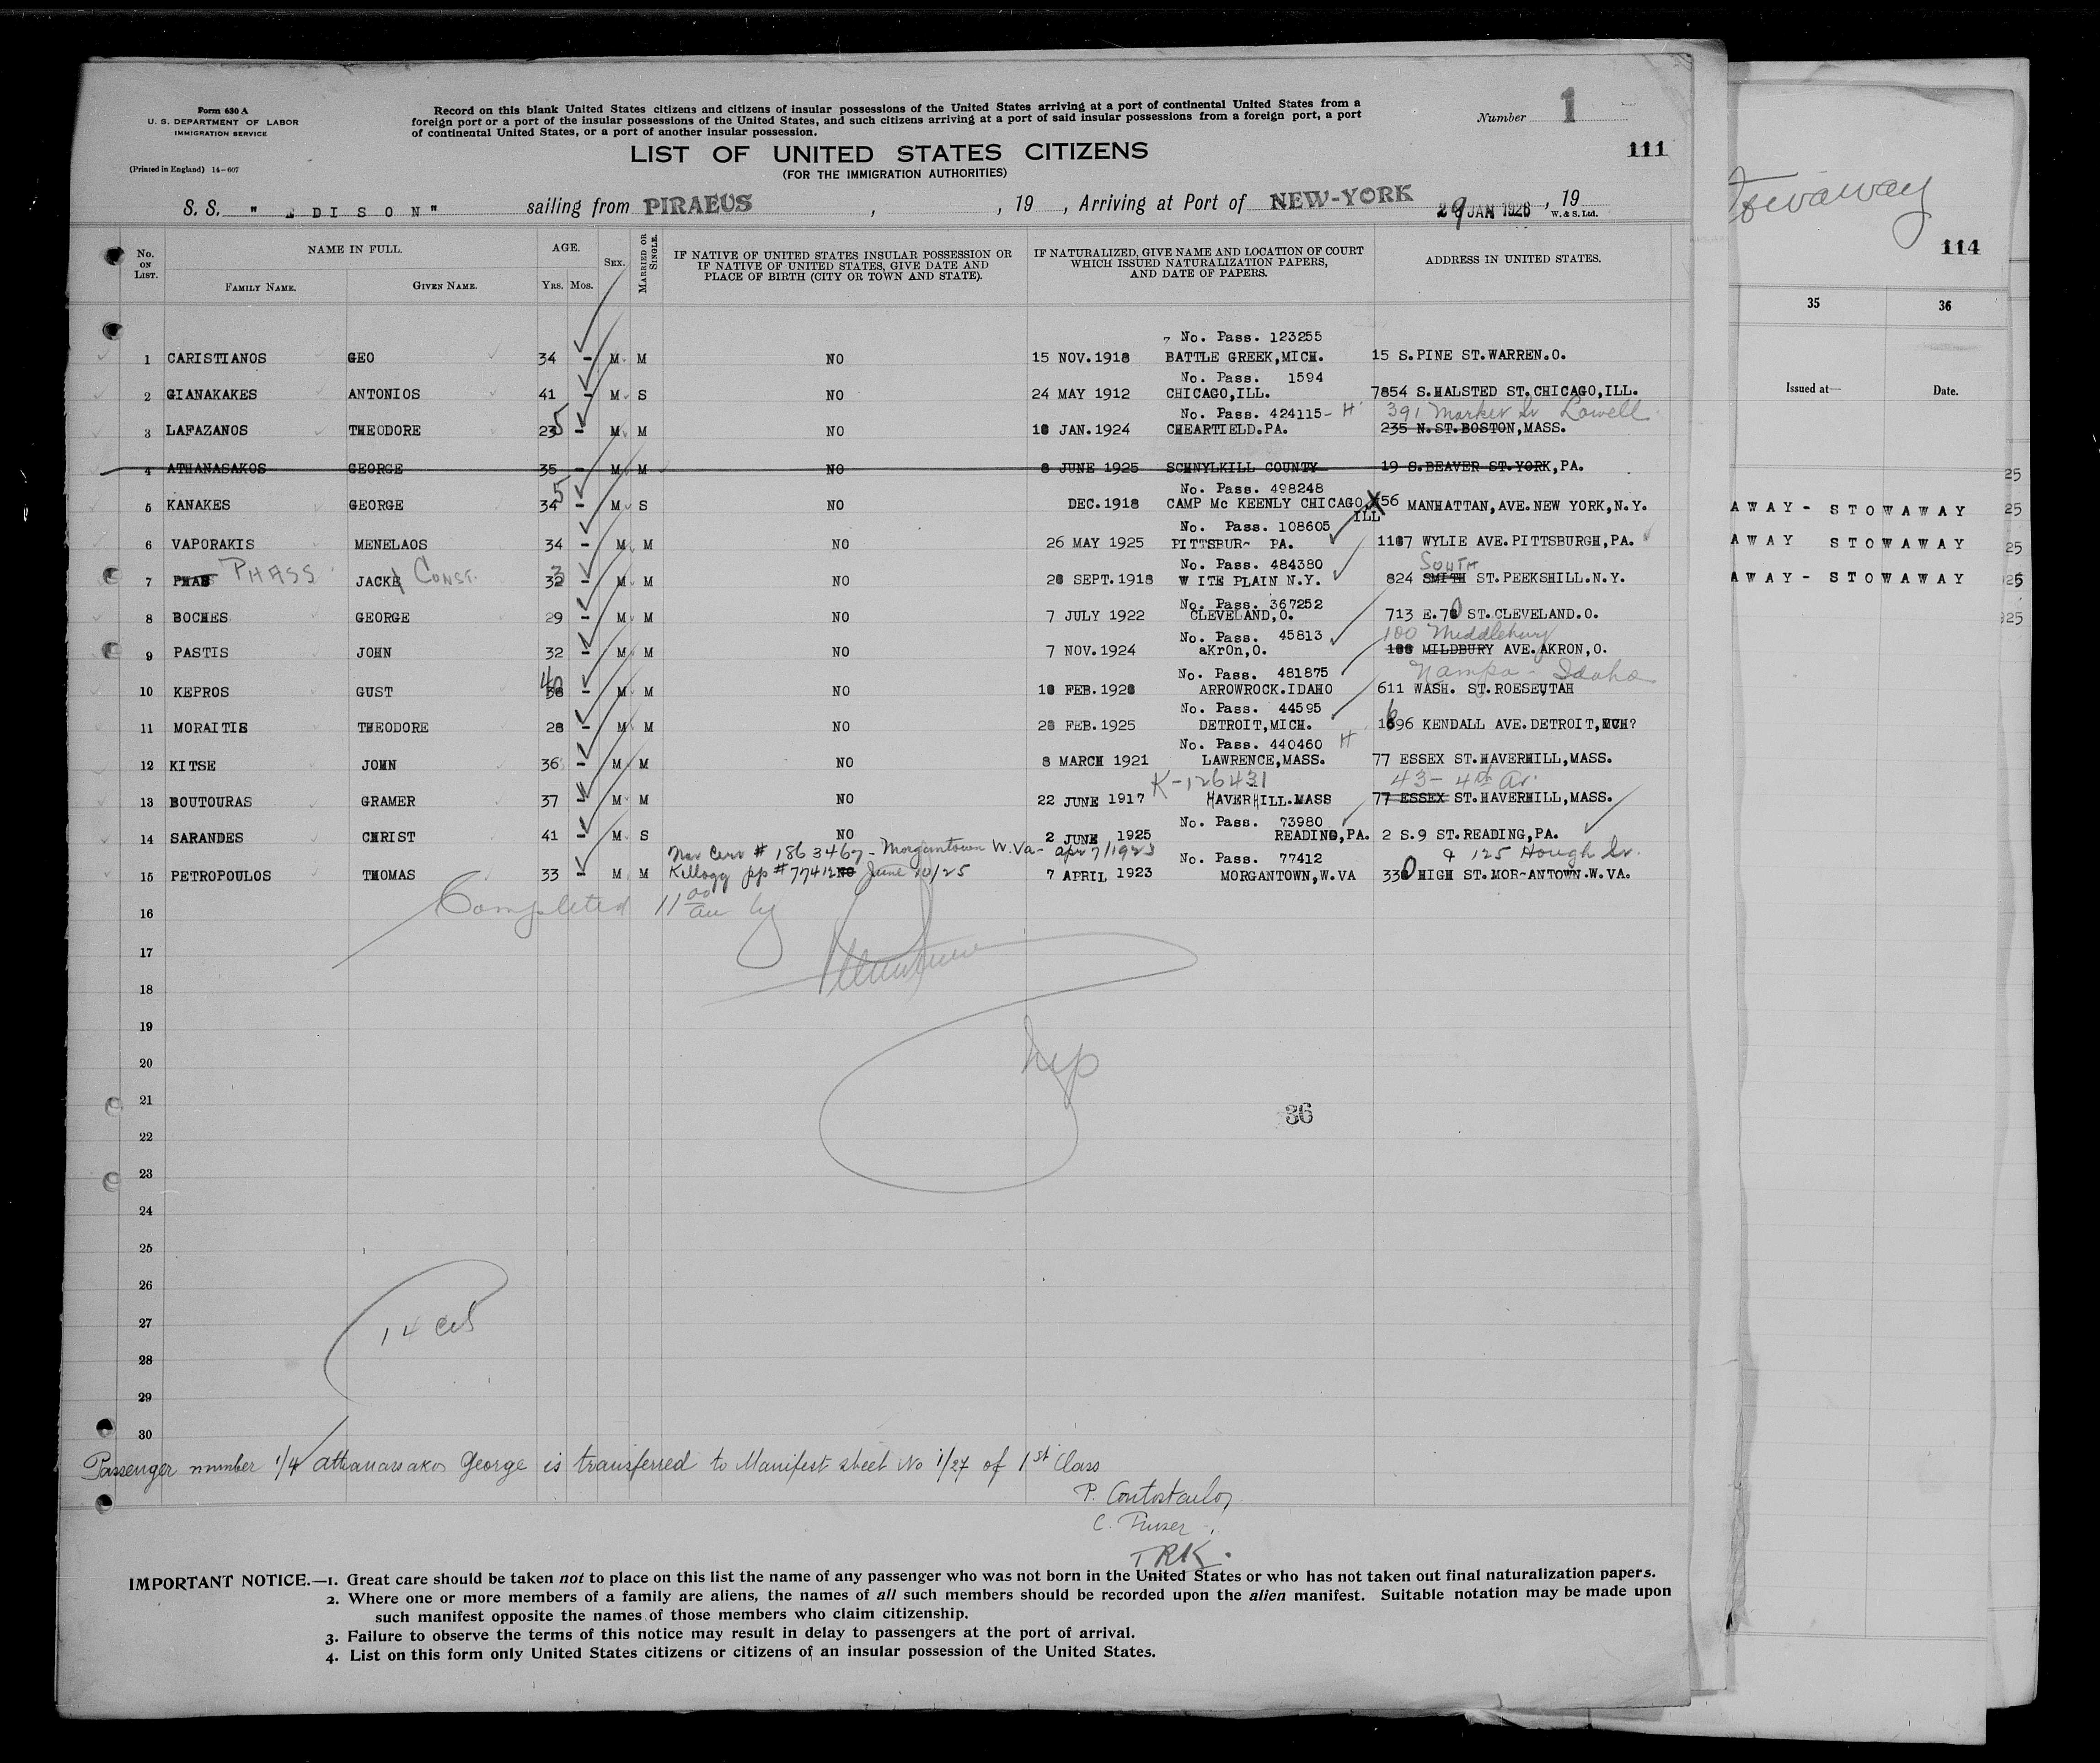 Form 630 A
U. S. DEPARTMENT OF LABOR
IMMIGRATION SERVICE
(Printed in England) 14-607
Record on this blank United States citizens and citizens of insular possessions of the United States arriving at a port of continental United States from a
foreign port or a port of the insular possessions of the United States, and such citizens arriving at a port of said insular possessions from a foreign port, a port
of continental United States, or a port of another insular possession.
Number 1
111
LIST OF UNITED STATES CITIZENS
(FOR THE IMMIGRATION AUTHORITIES)
S. S. " DISON" sailing from PIRAEUS , , 19 , Arriving at Port of NEW-YORK 29 JAN 1926, 19
W. & S. Ltd.
No. ON LIST. NAME IN FULL. AGE. SEX. MARRIED OR SINGLE. IF NATIVE OF UNITED STATES INSULAR POSSESSION OR IF NATIVE OF UNITED STATES, GIVE DATE AND PLACE OF BIRTH (CITY OR TOWN AND STATE). IF NATURALIZED, GIVE NAME AND LOCATION OF COURT WHICH ISSUED NATURALIZATION PAPERS, AND DATE OF PAPERS. ADDRESS IN UNITED STATES.
FAMILY NAME. GIVEN NAME. YRS. MOS.
No. Pass. 123255
1 CARISTIANOS GEO 34 - M M NO 15 NOV.1918 BATTLE GREEK,MICH. 15 S.PINE ST.WARREN.O.
No. Pass. 1594
2 GIANAKAKES ANTONIOS 41 - M S NO 24 MAY 1912 CHICAGO,ILL. 7854 S.HALSTED ST.CHICAGO,ILL.
No. Pass. 424115- H 391 Market St Lowell
3 LAFAZANOS THEODORE 235 - M M NO 18 JAN.1924 CHEARTIELD.PA. 235 N.ST.BOSTON,MASS.
4 ATHANASAKOS GEORGE 35 - M M NO 8 JUNE 1925 SCHNYLKILL COUNTY 19 S.BEAVER ST.YORK,PA.
No. Pass. 498248
5 KANAKES GEORGE 345 - M S NO DEC.1918 CAMP Mc KEENLY CHICAGO, ILL 56 MANHATTAN,AVE.NEW YORK,N.Y.
No. Pass. 108605
6 VAPORAKIS MENELAOS 34 - M M NO 26 MAY 1925 PITTSBUR~ PA. 1187 WYLIE AVE.PITTSBURGH,PA.
No. Pass. 484380 SOUTH
7 PHAS PHASS JACKE CONST. 323 - M M NO 28 SEPT.1918 W ITE PLAIN N.Y. 824 SMITH ST.PEEKSHILL.N.Y.
No. Pass. 367252
8 BOCHES GEORGE 29 - M M NO 7 JULY 1922 CLEVELAND,O. 713 E.70 ST.CLEVELAND.O.
No. Pass. 45813 100 Middlebury
9 PASTIS JOHN 32 - M M NO 7 NOV.1924 aKrOn,O. 188 MILDBURY AVE.AKRON,O.
No. Pass. 481875 Nampa - Idaho
10 KEPROS GUST 40 38 - M M NO 18 FEB.1928 ARROWROCK.IDAHO 611 WASH. ST.ROESEUTAH
No. Pass. 44595
11 MORAITIS THEODORE 28 - M M NO 28 FEB.1925 DETROIT,MICH. 1696 KENDALL AVE.DETROIT,MCH?
No. Pass. 440460 H
12 KITSE JOHN 36 - M M NO 8 MARCH 1921 LAWRENCE,MASS. 77 ESSEX ST.HAVERHILL,MASS.
K-126431 43- 4th Av.
13 BOUTOURAS GRAMER 37 - M M NO 22 JUNE 1917 HAVERHILL.MASS 77 ESSEX ST.HAVERHILL,MASS.
No. Pass. 73980
14 SARANDES CHRIST 41 - M S NO 2 JUNE 1925 READING,PA. 2 S.9 ST.READING,PA.
Nat Cert # 1863467- Morgantown W.Va- Apr 7/1923 No. Pass. 77412 & 125 Hough St.
15 PETROPOULOS THOMAS 33 - M M Kellogg pp # 77412 NO June 10/25 7 APRIL 1923 MORGANTOWN,W.VA 330 HIGH ST.MOR~ANTOWN.W.VA.
Completed 11 00 am by
16
17
18
19
20
21
36
22
23
24
25
26
27
14
28
29
30
Passenger number 1/4 Athanassakos George is transferred to Manifest sheet No 1/27 of 1st Class
P. Contostavlos
C. Purser
TRK.
IMPORTANT NOTICE.—1. Great care should be taken not to place on this list the name of any passenger who was not born in the United States or who has not taken out final naturalization papers.
2. Where one or more members of a family are aliens, the names of all such members should be recorded upon the alien manifest. Suitable notation may be made upon
such manifest opposite the names of those members who claim citizenship.
3. Failure to observe the terms of this notice may result in delay to passengers at the port of arrival.
4. List on this form only United States citizens or citizens of an insular possession of the United States.
Stowaway
114
35 36
Issued at— Date.
25
AWAY - STOWAWAY 25
AWAY STOWAWAY 25
AWAY - STOWAWAY 25
925